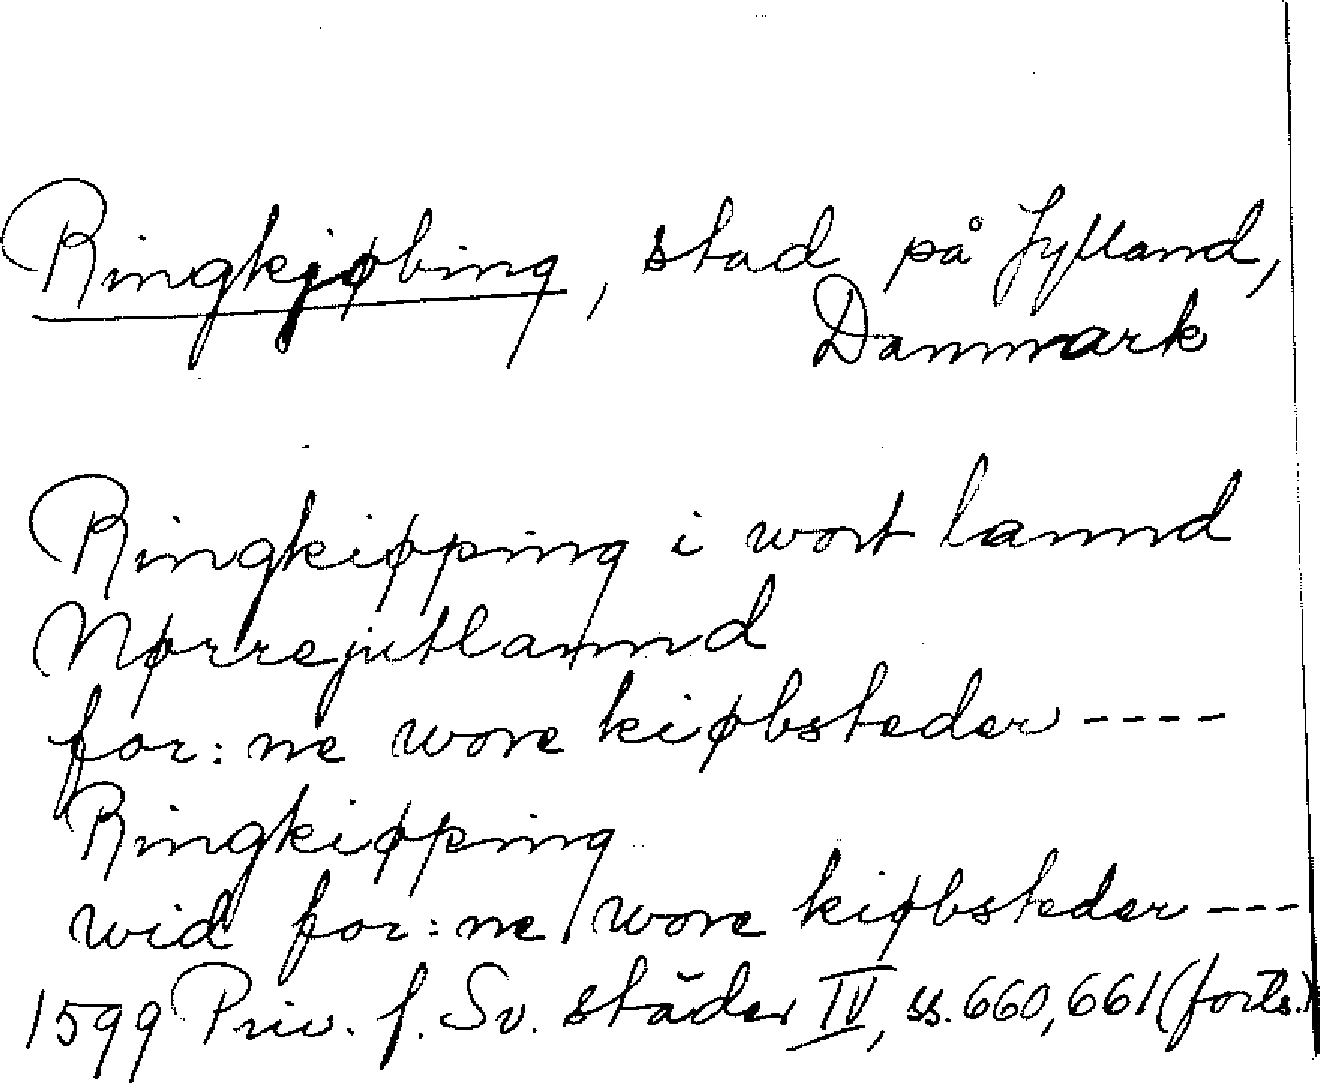 Ringkjøbing, stad på Jylland,
Danmark
Ringkiøpping i wort lannd
Nørrejutlannd
for:ne wore kiøbsteder ----
Ringkiøpping
wid for:ne wore kiøbsteder ---
1599 Priv. f. Sv. städer IV, ss. 660, 661 (forts.)